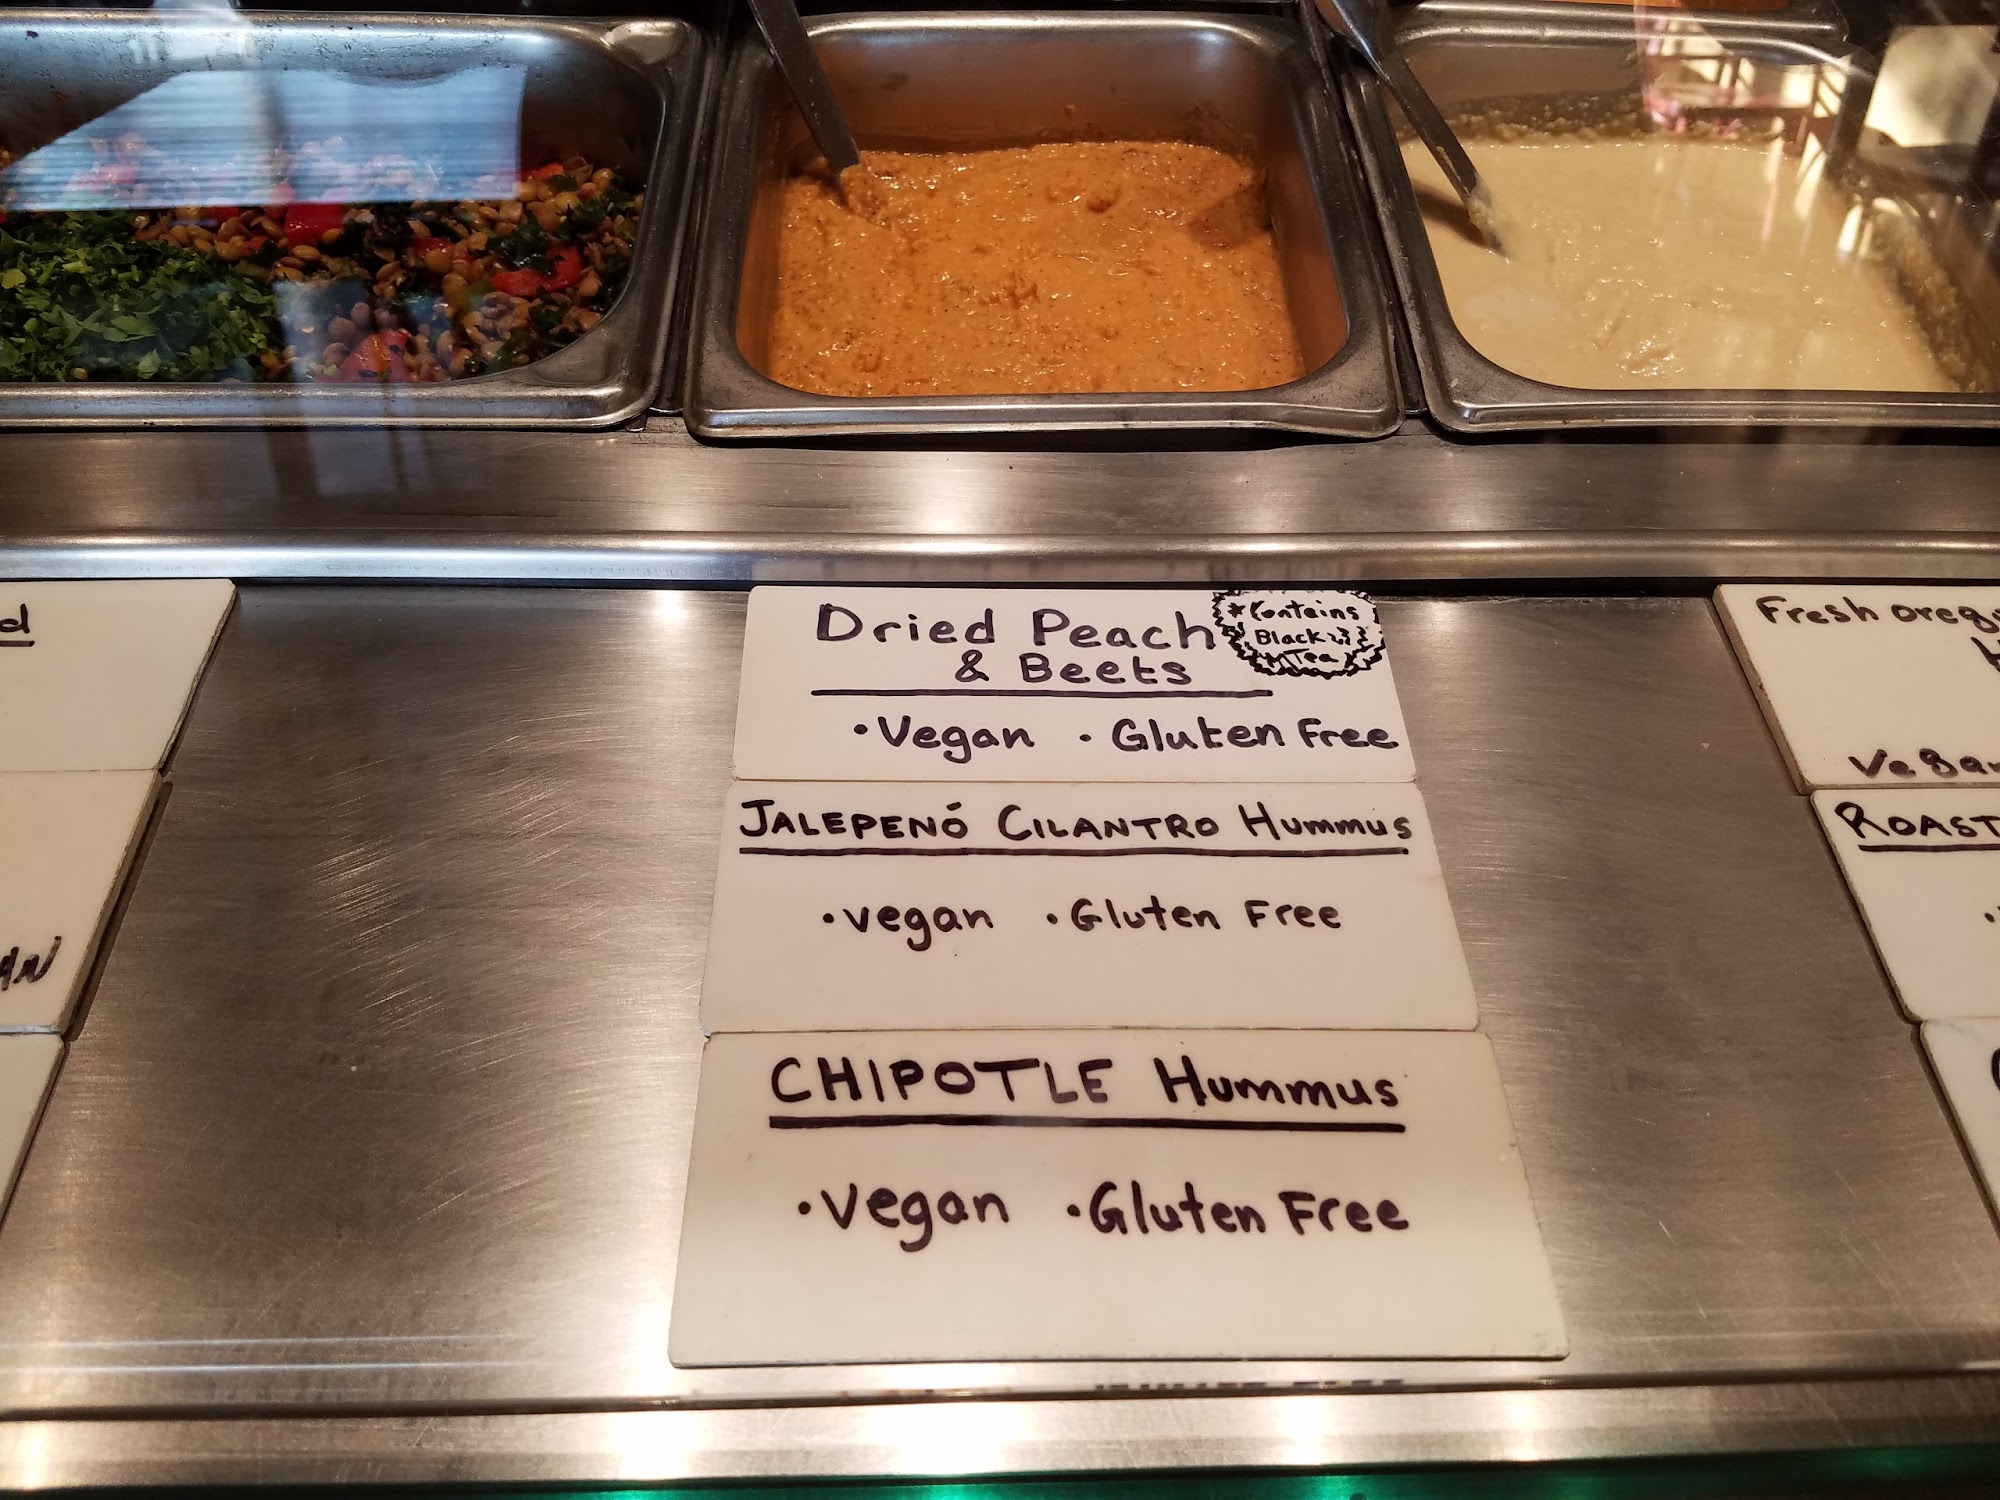 d
Dried Peach
& Beets
*Contains
Black
Tea
•Vegan •Gluten Free
JALEPENÓ CILANTRO Hummus
•vegan •Gluten Free
CHIPOTLE Hummus
•vegan •Gluten Free
AN
Fresh oreg
H
vegan
ROAST